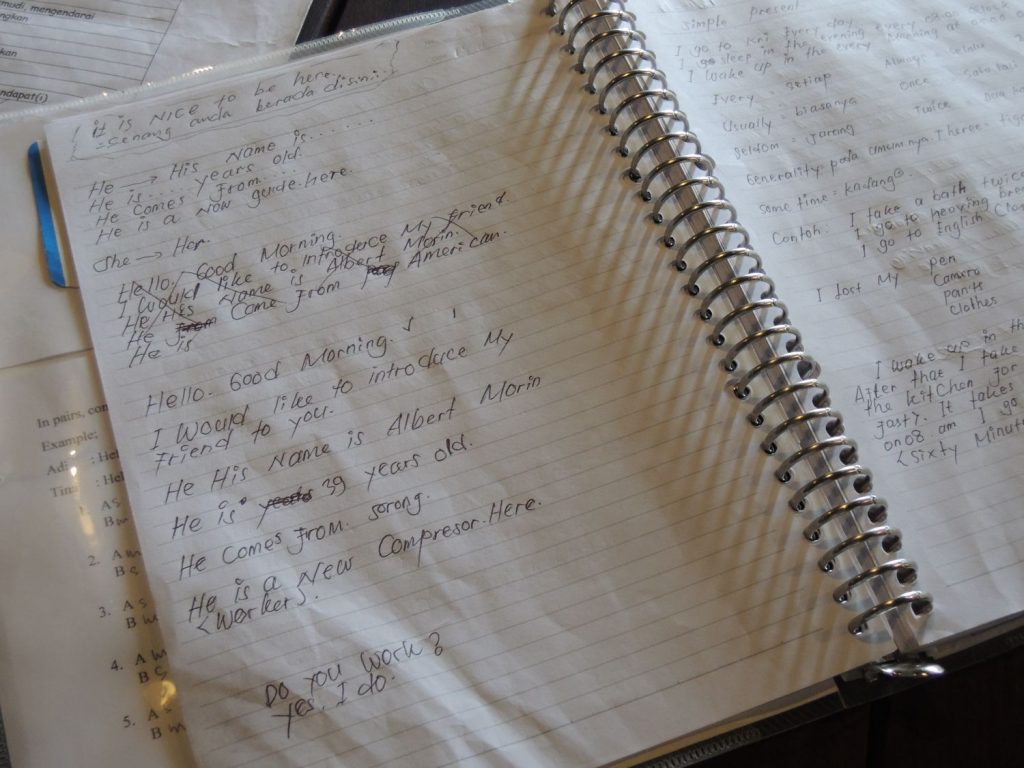 mudi, mengendarai
ngkan
kan
ndapat(i)
it is NICE to be here.
= senang anda berada disini..
He → His Name is.......
He is..... years old.
He comes from....
He is a Now guide.here.
She → Her.
Hello. Good Morning.
I Would like to introduce My Friend.
He His Name is Albert Morin.
He from Come From American.
He is
Hello. Good Morning.
I Would like to introduce My
Friend to you.
He His Name is Albert Morin
He is years 39 years old.
He comes from. sorong.
He is a New Compresor.Here.
<Worker>.
Do you work?
Yes, I do.
In pairs, con
Example;
Adi : Hel
Tina : Hel
1. A s
B w
2. A w
B s
3. A s
B w
4. A w
B s
5. A s
B w
simple present
I go to Every day
I sleep in the evening every
I wake up in the every
Every = setiap Always
Usually = biasanya once
Seldom = jarang Twice
Generality: pada umumnya. Three =
Some time = kadang²
Contoh: I take a bath twice
I go to
I go to English
I lost My pen
Camera
pants
clothes
I wake up in th
After that I take
the kitchen for
fast). It takes
on 08. am I go
<sixty Minut